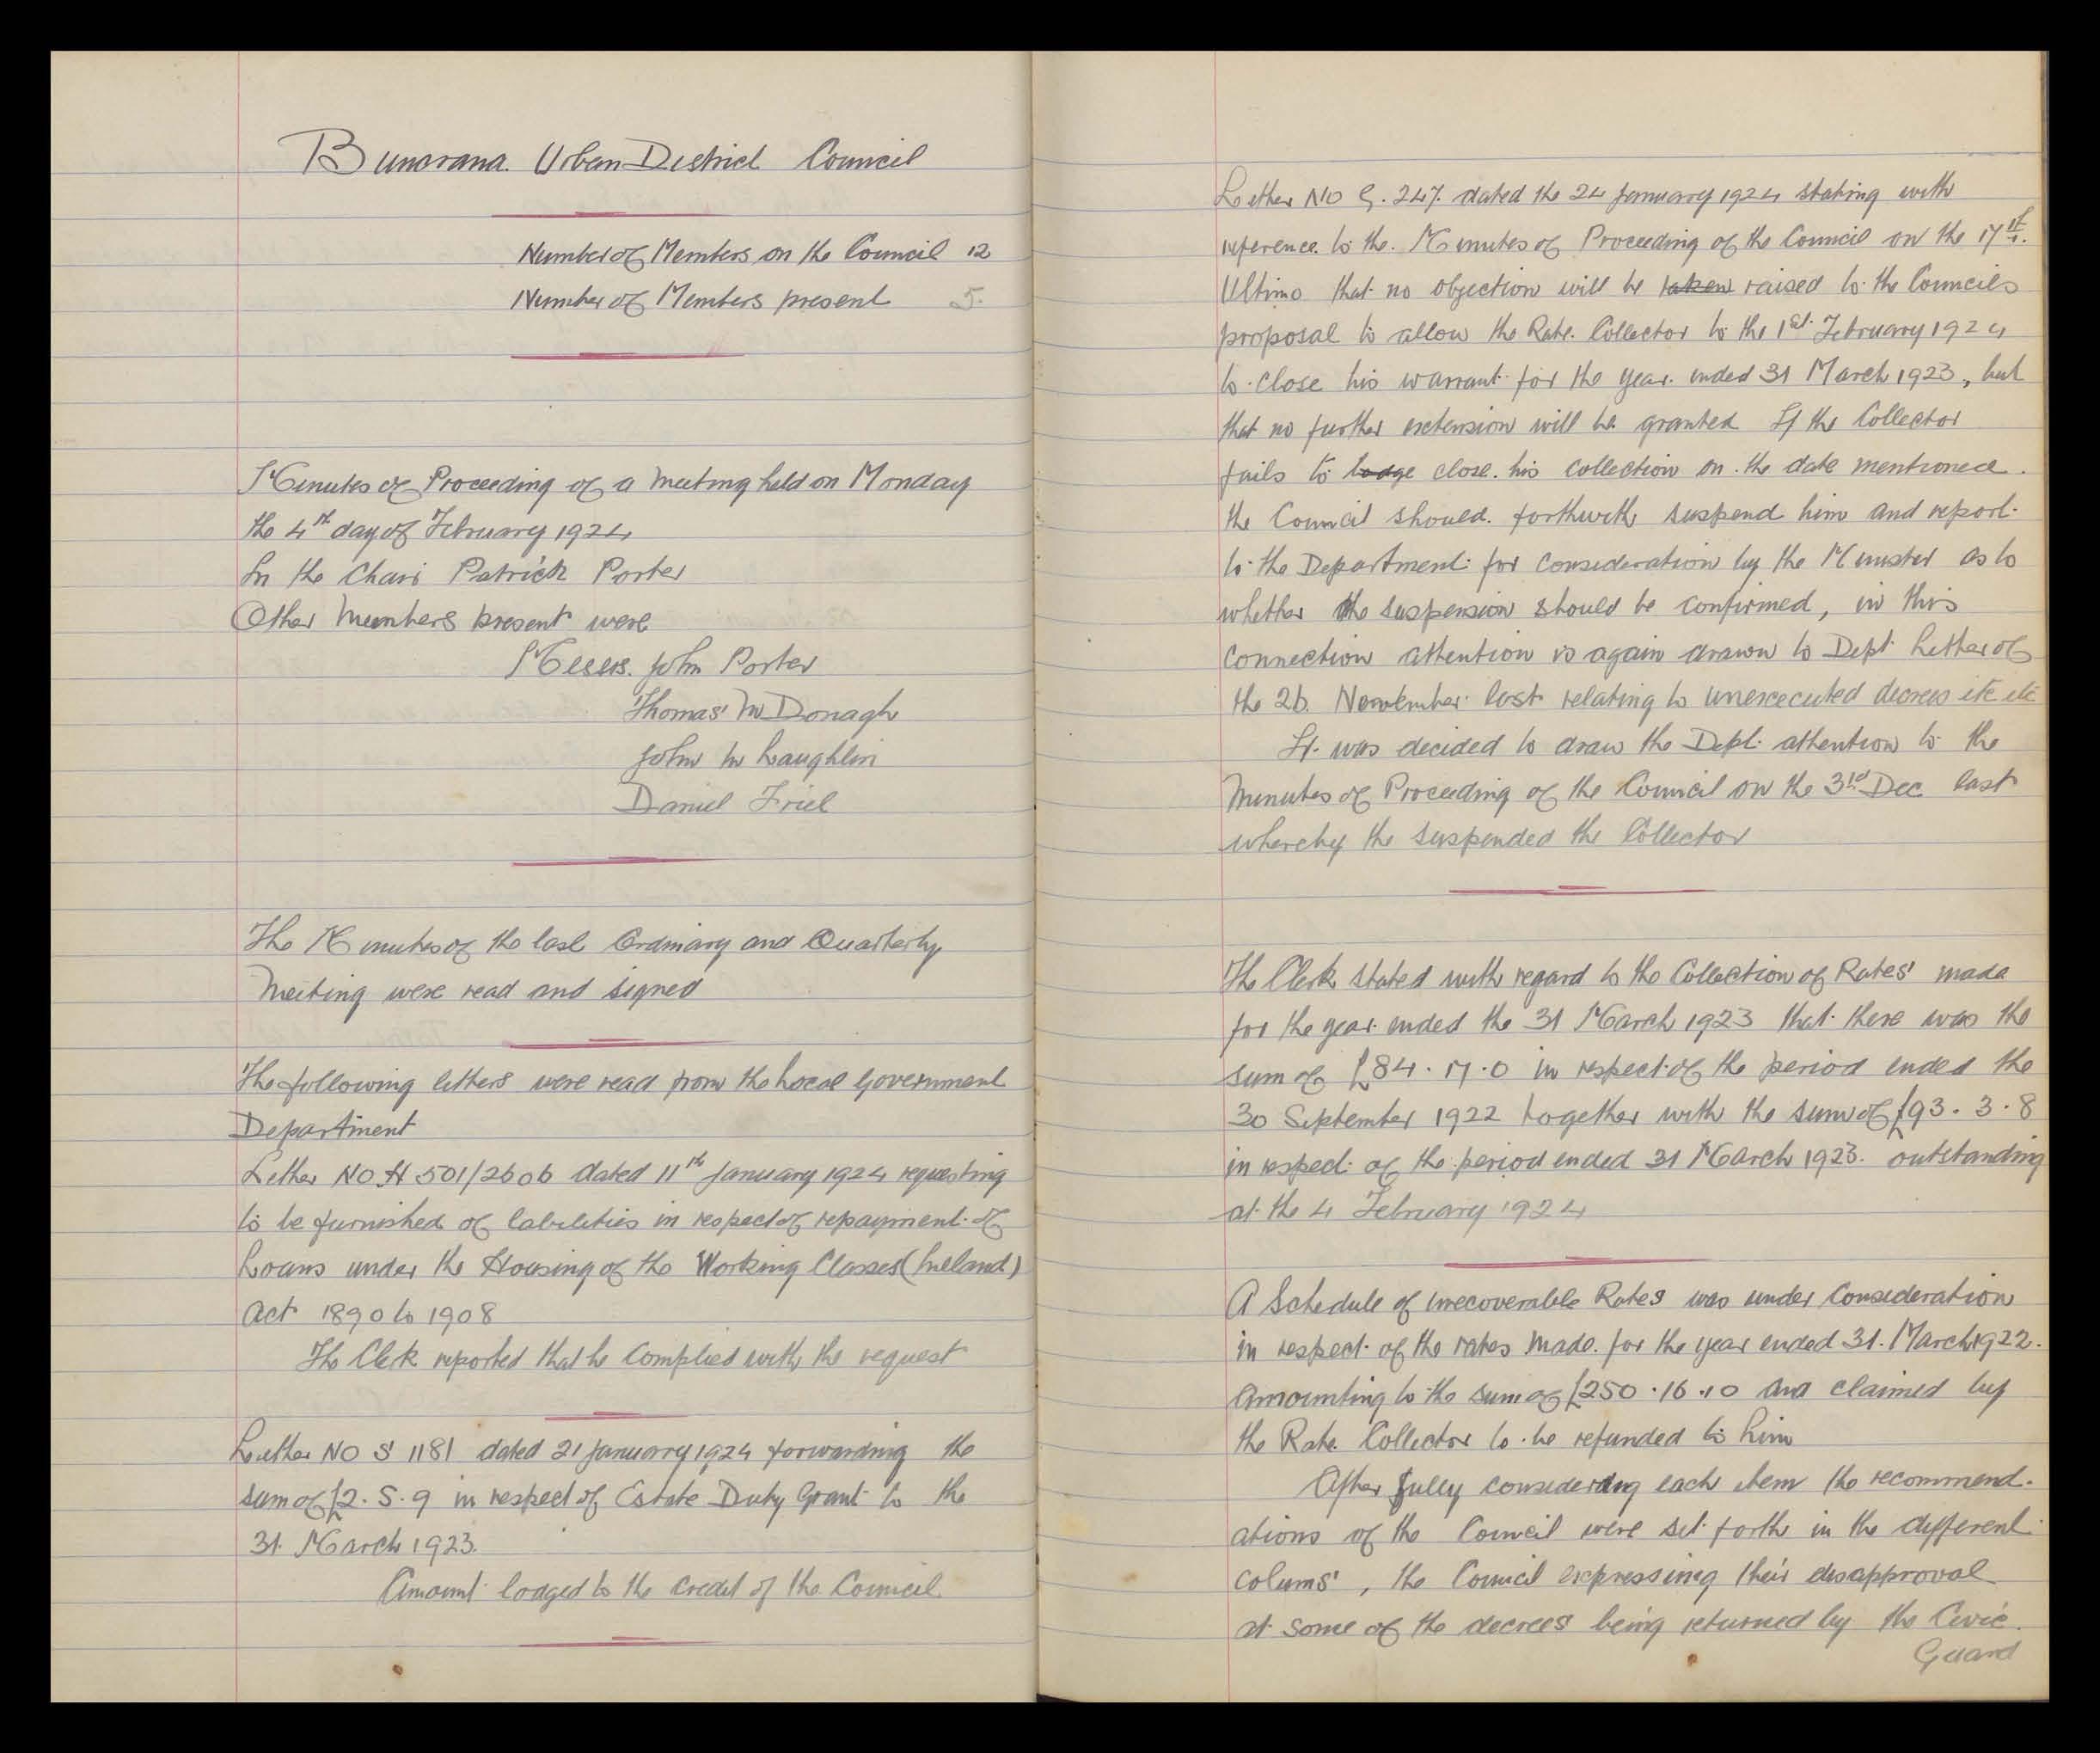 Buncrana. Urban District Council
Number of Members on the Council 12
Number of Members present 5.
Minutes of Proceeding of a meeting held on Monday
the 4th day of February 1924
In the Chair Patrick Porter
Other Members present were
Messrs. John Porter
Thomas McDonagh
John McLaughlin
Daniel Friel
The Minutes of the last Ordinary and Quarterly
Meeting were read and signed
The following letters were read from the Local Government
Department
Letter No H.501/2606 dated 11th January 1924 requesting
to be furnished of labilities in respect of repayment of
Loans under the Housing of the Working Classes (Ireland)
Act 1890 to 1908
The Clerk reported that he complied with the request
Letter No S 1181 dated 21 January 1924 forwarding the
sum of £2.5.9 in respect of Estate Duty Grant to the
31 March 1923.
Amount lodged to the credit of the Council
Letter No G.247. dated the 24 January 1924 stating with
reference to the. Minutes of Proceeding of the Council on the 17th.
Ultimo that no objection will be taken raised to the Councils
proposal to allow the Rate. Collector to the 1st February 1924
to close his warrant for the year ended 31 March 1923, but
that no further extension will be granted If the Collector
fails to lodge close his collection on the date mentioned.
the Council should. forthwith suspend him and report
to the Department for consideration by the Minister as to
whether the suspension should be confirmed, in this
connection attention is again drawn to Dept Letter of
the 26 November last relating to unexecuted decrees etc etc
It was decided to draw the Dept. attention to the
Minutes of Proceeding of the Council on the 3rd Dec last
whereby the suspended the Collector
The Clerk stated with regard to the Collection of Rates made
for the year ended the 31 March 1923 that there was the
sum of £84.17.0 in respect of the period ended the
30 September 1922 together with the sum of £93.3.8
in respect of the period ended 31 March 1923. outstanding
at the 4 February 1924
A Schedule of irrecoverable Rates was under Consideration
in respect of the rates made for the year ended 31. March 1922.
amounting to the sum of £250.16.10 and claimed by
the Rate Collector to be refunded to him
After fully considering each item the recommend-
ations of the Council were set forth in the different
colums, the Council expressing their disapproval
at some of the decrees being returned by the Civic.
Guard